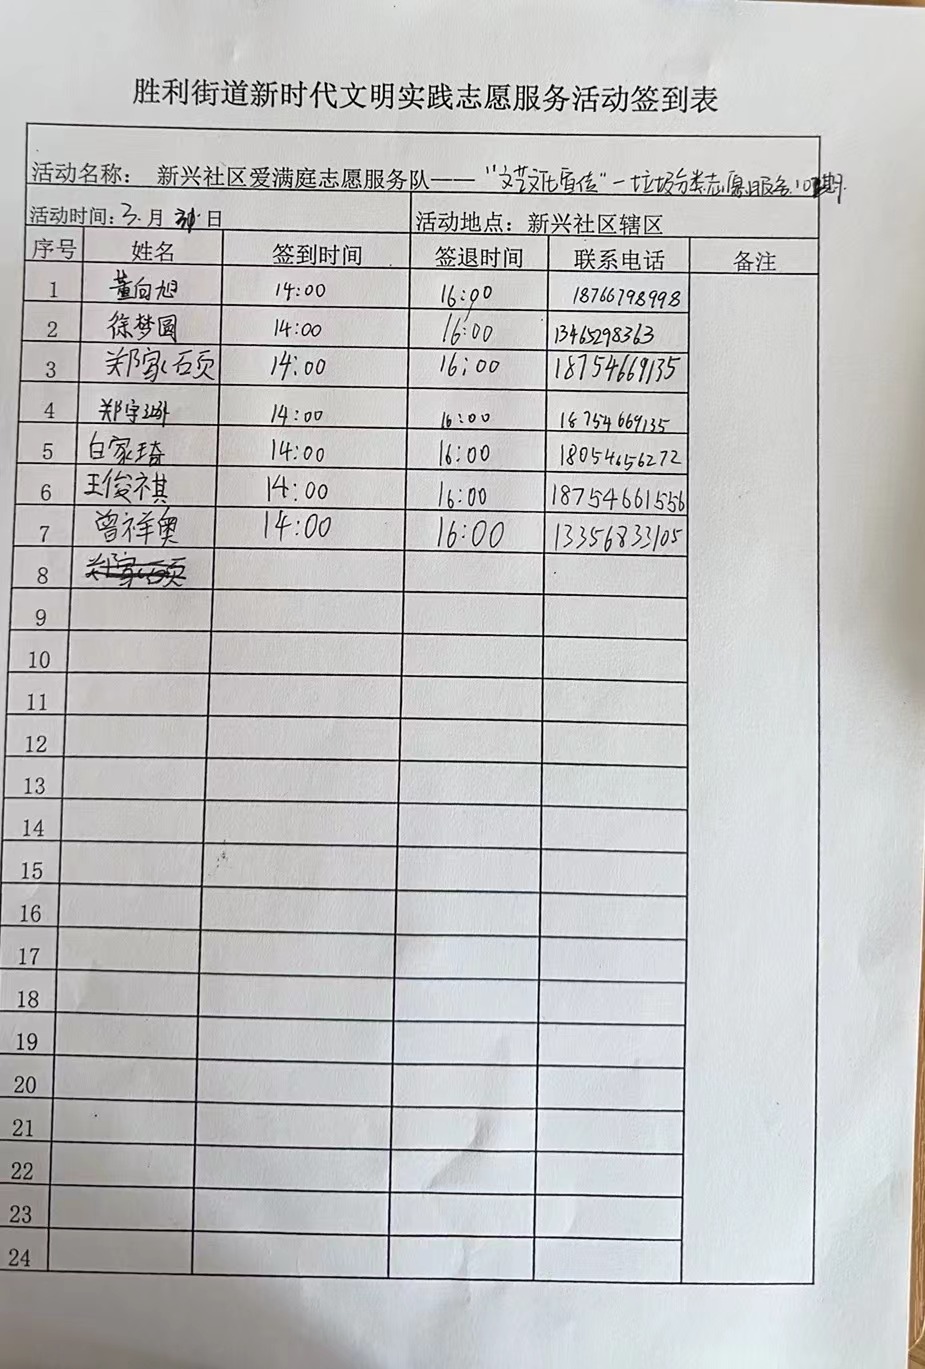 胜利街道新时代文明实践志愿服务活动签到表
活动名称： 新兴社区爱满庭志愿服务队——“文艺文化宣传”－垃圾分类志愿服务 期
活动时间：3月 日 活动地点：新兴社区辖区
序号 姓名 签到时间 签退时间 联系电话 备注
1 董向旭 14:00 16:00 18766798998
2 徐梦圆 14:00 16:00 13465298363
3 郑家硕 14:00 16:00 18754669135
4 郑宇 14:00 16:00 18754669135
5 白家琦 14:00 16:00 18054656272
6 王俊祺 14:00 16:00 18754661556
7 曾祥奥 14:00 16:00 13356833105
8 郑家硕
9
10
11
12
13
14
15
16
17
18
19
20
21
22
23
24